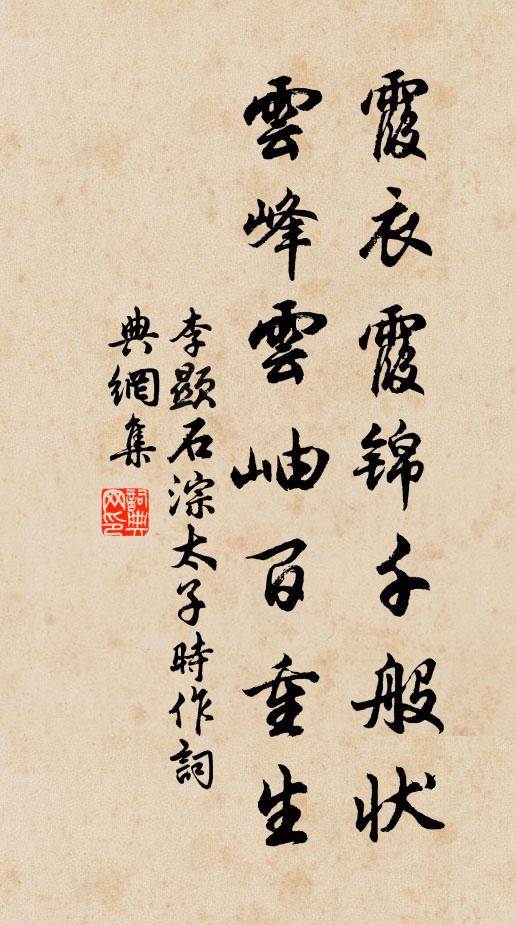 霞衣霞錦千般状
雲峰雲岫百重生
李顯石淙太子時作詞
典網集
詞典
网印